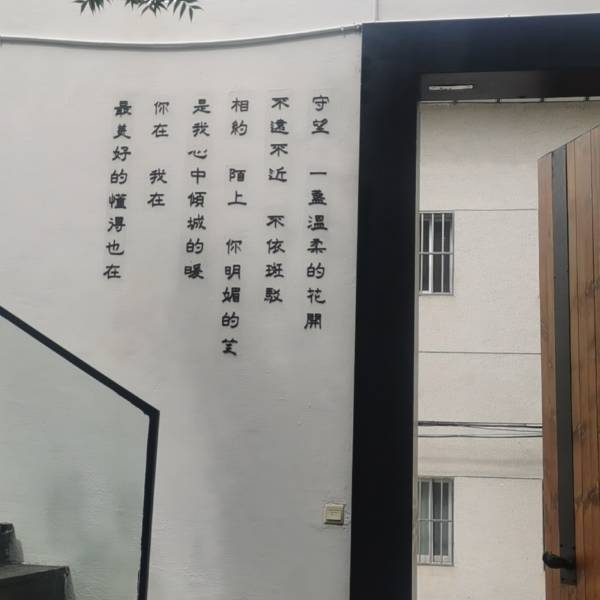 守望 一盞溫柔的花開
不遠不近 不依斑駁
相約 陌上 你明媚的笑
是我心中傾城的暖
你在 我在
最美好的懂得也在